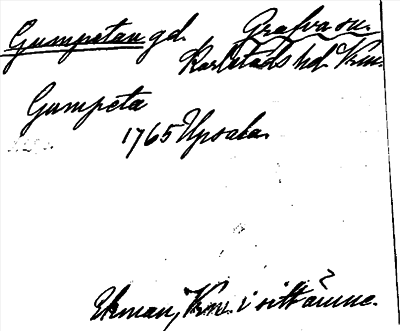 Gumpetan gd. Grafva sn.
Karlstads hd. Krn.
Gumpeta
1765 Upsala.
Ekman, Krn. i sitt ämne.